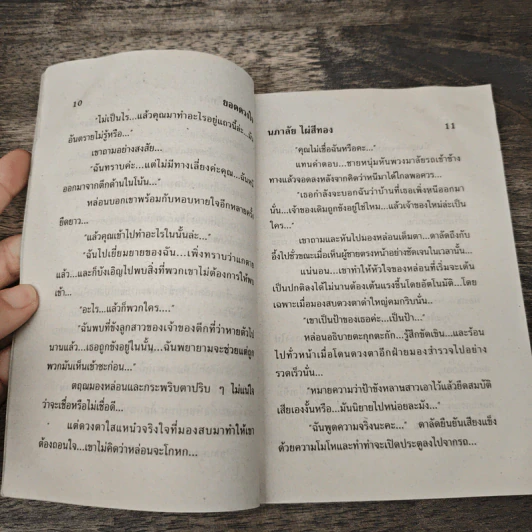 10
ยอดดวงใจ
"ไม่เป็นไร...แล้วคุณมาทำอะไรอยู่แถวนี้ล่ะ...
อันตรายไม่รู้หรือ..."
เขาถามอย่างสงสัย...
"ฉันทราบค่ะ...แต่ไม่มีทางเลี่ยงค่ะคุณ...ฉัน
ออกมาจากตึกด้านในโน้น..."
หล่อนบอกเขาพร้อมกับหอบหายใจอีกหลาย
ยืดยาว...
"แล้วคุณเข้าไปทำอะไรในนั้นล่ะ..."
"ฉันไปเยี่ยมยายของฉัน...เพิ่งทราบว่าแก
แล้ว...และก็บังเอิญไปพบสิ่งที่พวกเขาไม่ต้องการให้
เข้า..."
"อะไร...แล้วก็พวกใคร..."
"ฉันพบที่ขังลูกสาวของเจ้าของตึกที่ว่าหายตัวไป
นานแล้ว...เธอถูกขังอยู่ในนั้น...ฉันพยายามจะช่วยแต่ถูก
พวกมันเห็นเข้าซะก่อน..."
ตฤณมองหล่อนและกระพริบตาปริบ ๆ ไม่แน่ใจ
ว่าจะเชื่อหรือไม่เชื่อดี...
แต่ดวงตาใสแหน๋วจริงใจที่มองสบมาทำให้เขา
ต้องถอนใจ...เขาไม่คิดว่าหล่อนจะโกหก...
นภาลัย ไผ่สีทอง
11
"คุณไม่เชื่อฉันหรือคะ..."
แทนคำตอบ...ชายหนุ่มหันพวงมาลัยรถเข้าข้าง
ทางแล้วจอดลงหลังจากคิดว่าหนีมาได้ไกลพอควร...
"เธอกำลังจะบอกฉันว่าบ้านที่เธอเพิ่งหนีออกมา
นั่น...เจ้าของเดิมถูกขังอยู่ใช่ไหม...แล้วเจ้าของใหม่ล่ะเป็น
ใคร..."
เขาถามและหันไปมองหล่อนเต็มตา...ดาลัดถึงกับ
อึ้งไปชั่วขณะเมื่อเห็นผู้ชายตรงหน้าอย่างชัดเจนในเวลานั้น...
แน่นอน...เขาทำให้หัวใจของหล่อนที่เริ่มจะเต้น
เป็นปกติลงได้ไม่นานต้องเต้นแรงขึ้นโดยอัตโนมัติ...โดย
เฉพาะเมื่อมองสบดวงตาดำใหญ่คมกริบนั่น...
"เขาเป็นป้าของเธอค่ะ...เป็นป้า..."
หล่อนอธิบายตะกุกตะกัก...รู้สึกขัดเขิน...และร้อน
ไปทั่วหน้าเมื่อโดนดวงตาอีกฝ่ายมองสำรวจไปอย่าง
รวดเร็วนั่น...
"หมายความว่าป้าขังหลานสาวเอาไว้แล้วยึดสมบัติ
เสียเองงั้นหรือ...มันนิยายไปหน่อยละมัง..."
"ฉันพูดความจริงนะคะ..." ดาลัดยืนยันเสียงแข็ง
ด้วยความโมโหและทำท่าจะเปิดประตูลงไปจากรถ...